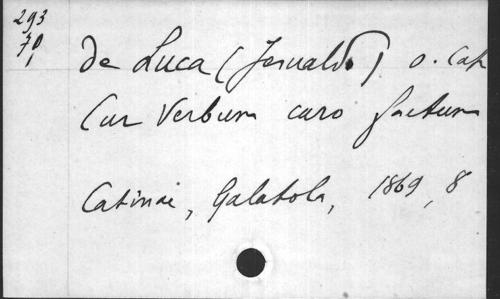 293
70,
de Luca (Jesualdo) o. Cap
Cur Verbum caro factum
Catinae, Galatola, 1869, 8